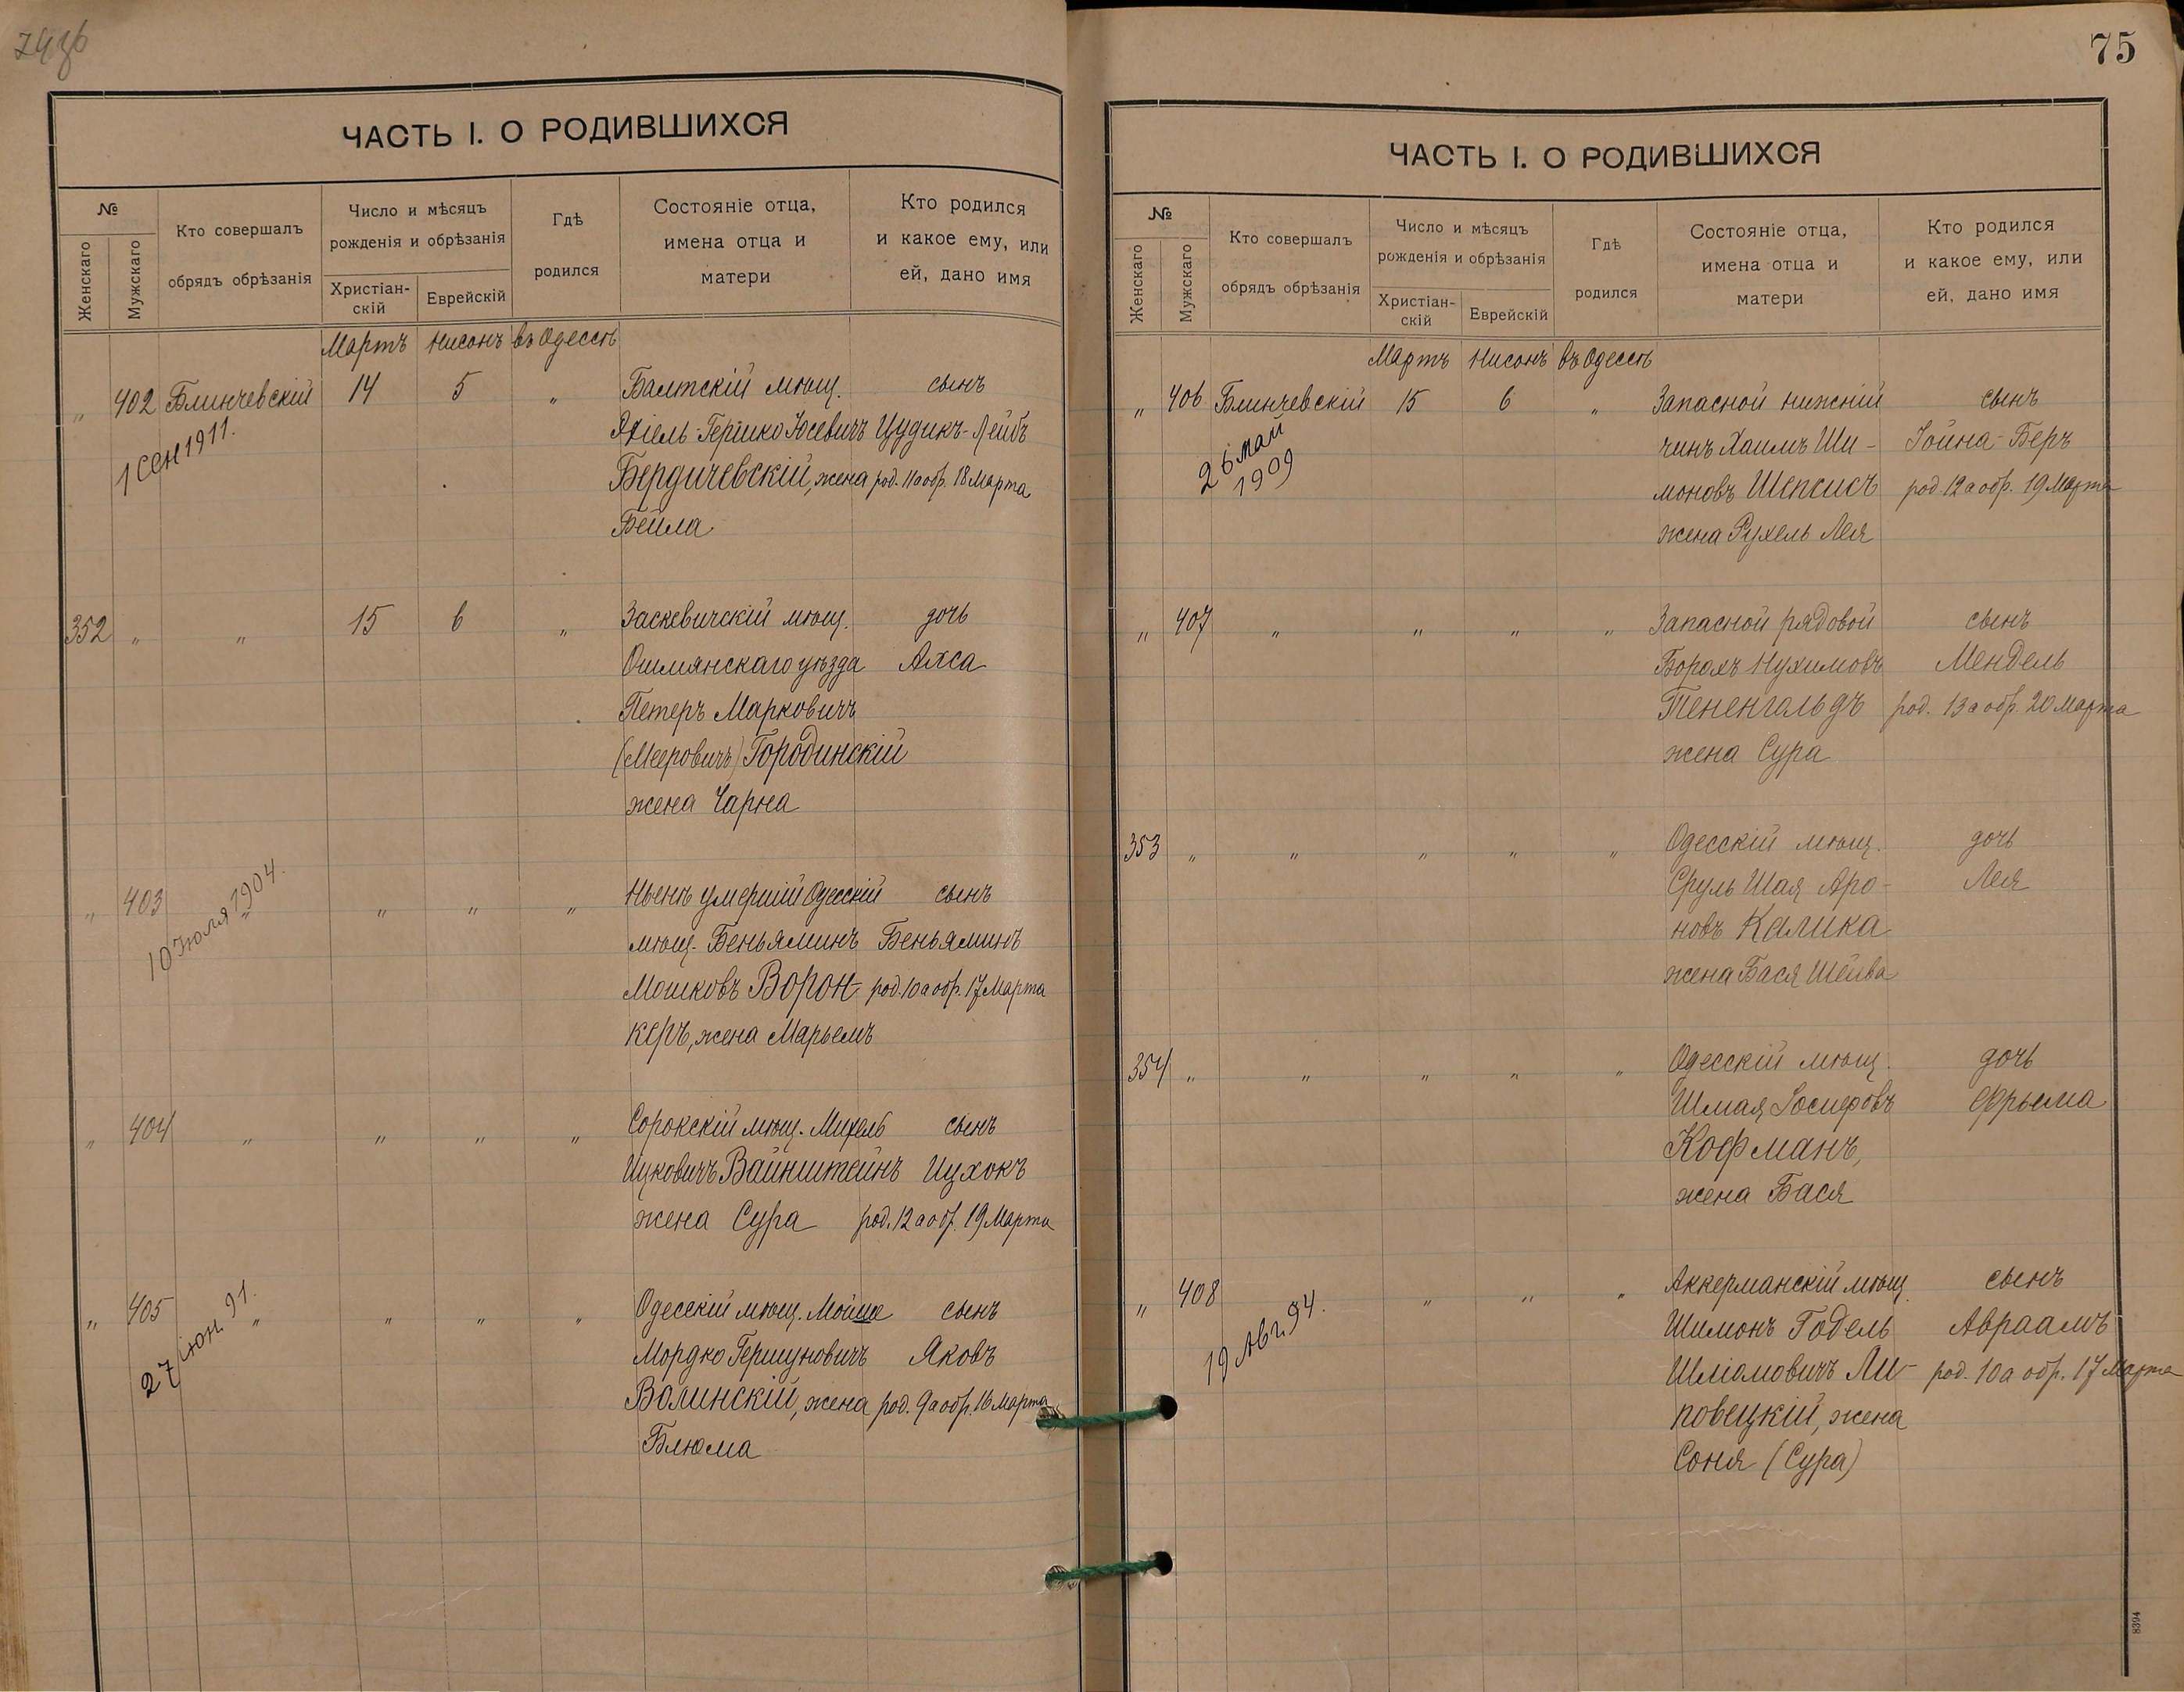 ЧАСТЬ I. О РОДИВШИХСЯ
№
Женскаго
Мужскаго
Кто совершалъ
обрядъ обрѣзанія
Число и мѣсяцъ
рожденія и обрѣзанія
Христіан-
скій
Еврейскій
Гдѣ
родился
Состояніе отца,
имена отца и
матери
Кто родился
и какое ему, или
ей, дано имя
Мартъ Нисонъ въ Одессѣ
„ 402 Блинчевскій 14 5 „ Балтскій мѣщ. сынъ
1 Сен 1911. Іехіель-Гершко Юсевичъ Цудикъ-Лейбъ
Бердичевскій, жена род. 11 а обр. 18 Марта
Бейла
352 „ „ 15 6 „ Заскевичскій мѣщ. дочь
Ошмянскаго уѣзда Ахса
Петеръ Марковичъ
(Мееровичъ) Городинскій
жена Чарна
„ 403 „ „ „ „ Нынѣ умершій Одесскій сынъ
10 Июля 1904. мѣщ. Беньяминъ Беньяминъ
Мошковъ Ворон- род. 10 а обр. 17 Марта
керъ, жена Марьемъ
„ 404 „ „ „ „ Сорокскій мѣщ. Михель сынъ
Ицковичъ Вайнштейнъ Ицхокъ
жена Сура род. 12 а обр. 19 Марта
„ 405 „ „ „ „ Одесскій мѣщ. Мойше сынъ
27 іюн. 91. Мордко Гершуновичъ Яковъ
Волинскій, жена род. 9 а обр. 16 Марта
Блюма
75
ЧАСТЬ I. О РОДИВШИХСЯ
№
Женскаго
Мужскаго
Кто совершалъ
обрядъ обрѣзанія
Число и мѣсяцъ
рожденія и обрѣзанія
Христіан-
скій
Еврейскій
Гдѣ
родился
Состояніе отца,
имена отца и
матери
Кто родился
и какое ему, или
ей, дано имя
Мартъ Нисонъ въ Одессѣ
„ 406 Блинчевскій 15 6 „ Запасной нижній сынъ
26 май чинъ Хаимъ Ши- Іойна-Беръ
1909 моновъ Шепсисъ род 12 а обр. 19 Марта
жена Рухель Лея
„ 407 „ „ „ „ Запасной рядовой сынъ
Борохъ Нухимовъ Мендель
Тененгольдъ род. 13 а обр. 20 Марта
жена Сура
353 „ „ „ „ „ Одесскій мѣщ. дочь
Сруль Шая Аро- Лея
новъ Калика
жена Бася Шейва
354 „ „ „ „ „ Одесскій мѣщ. дочь
Шмая Іосифовъ Фрыма
Кофманъ,
жена Бася
„ 408 „ „ „ Аккерманскій мѣщ. сынъ
19 Авг. 94. Шимонъ Годель Авраамъ
Шліомовичъ Ли- род. 10 а обр. 17 Марта
повецкій, жена
Соня (Сура)
8394